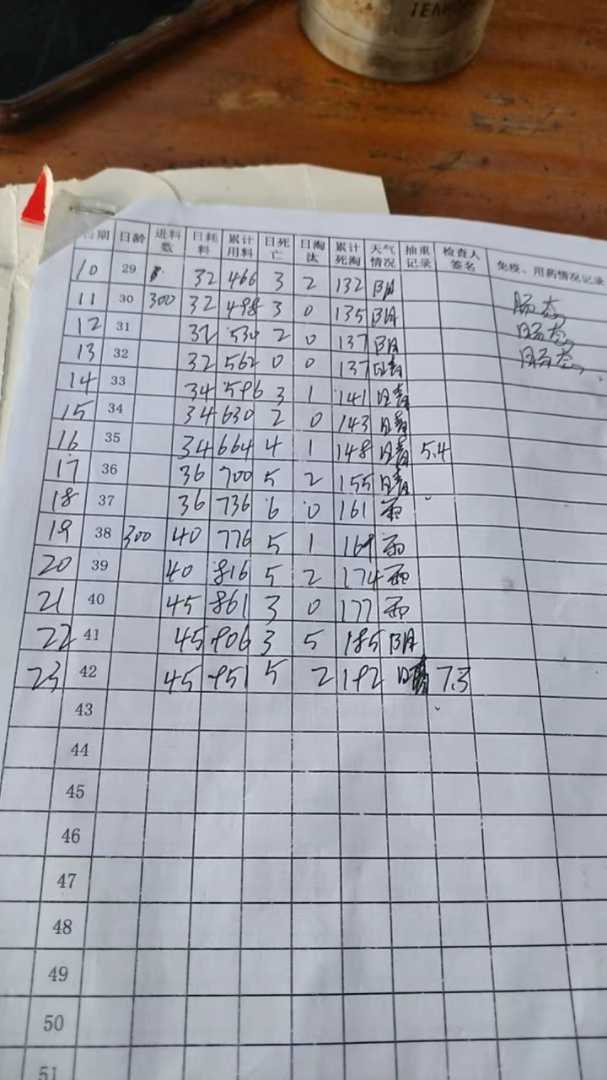 日期 日龄 进料数 日耗料 累计用料 日死亡 日淘汰 累计死淘 天气情况 抽重记录 检查人签名 免疫、用药情况记录
10 29 32 466 3 2 132 阴
11 30 300 32 498 3 0 135 阴 肠态
12 31 32 530 2 0 137 阴 肠态
13 32 32 562 0 0 137 晴 肠态
14 33 34 596 3 1 141 晴
15 34 34 630 2 0 143 晴
16 35 34 664 4 1 148 晴 5.4
17 36 36 700 5 2 155 晴
18 37 36 736 6 0 161 雨
19 38 300 40 776 5 1 167 雨
20 39 40 816 5 2 174 雨
21 40 45 861 3 0 177 雨
22 41 45 906 3 5 185 阴
23 42 45 951 5 2 192 晴 7.3
43
44
45
46
47
48
49
50
51